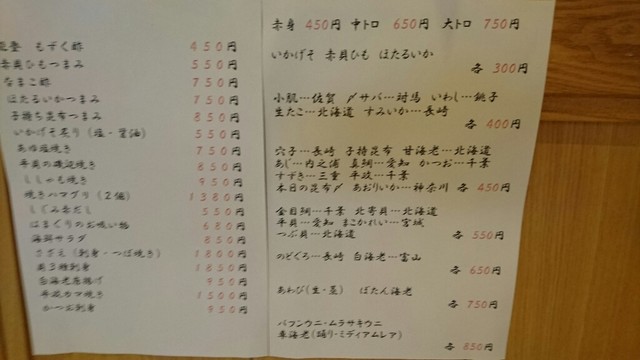 もずく酢 450円
赤貝ひもつまみ 550円
なまこ酢 750円
ほたるいかつまみ 750円
子持ち昆布つまみ 850円
いかげそ炙り(塩・醤油) 550円
あゆ塩焼き 750円
平貝の磯辺焼き 850円
ししゃも焼き 950円
焼きハマグリ(2個) 1380円
しじみ赤だし 550円
はまぐりのお吸い物 680円
海鮮サラダ 850円
さざえ(刺身・つぼ焼き) 1800円
刺身 1850円
白海老唐揚げ 950円
平政カマ焼き 1500円
かつお刺身 950円
赤身 450円 中トロ 650円 大トロ 750円
いかげそ 赤貝ひも ほたるいか
各 300円
小肌…佐賀 〆サバ…対馬 いわし…銚子
生たこ…北海道 すみいか…長崎
各 400円
穴子…長崎 子持昆布 甘海老…北海道
あじ…内之浦 真鯛…愛知 かつお…千葉
すずき…三重 平政…千葉
本日の昆布〆 あおりいか…神奈川 各 450円
金目鯛…千葉 北寄貝…北海道
平貝…愛知 まこかれい…宮城
つぶ貝…北海道 各 550円
のどぐろ…長崎 白海老…富山
各 650円
あわび(生・蒸) ぼたん海老
各 750円
バフンウニ・ムラサキウニ
車海老(踊り・ミディアムレア)
各 850円